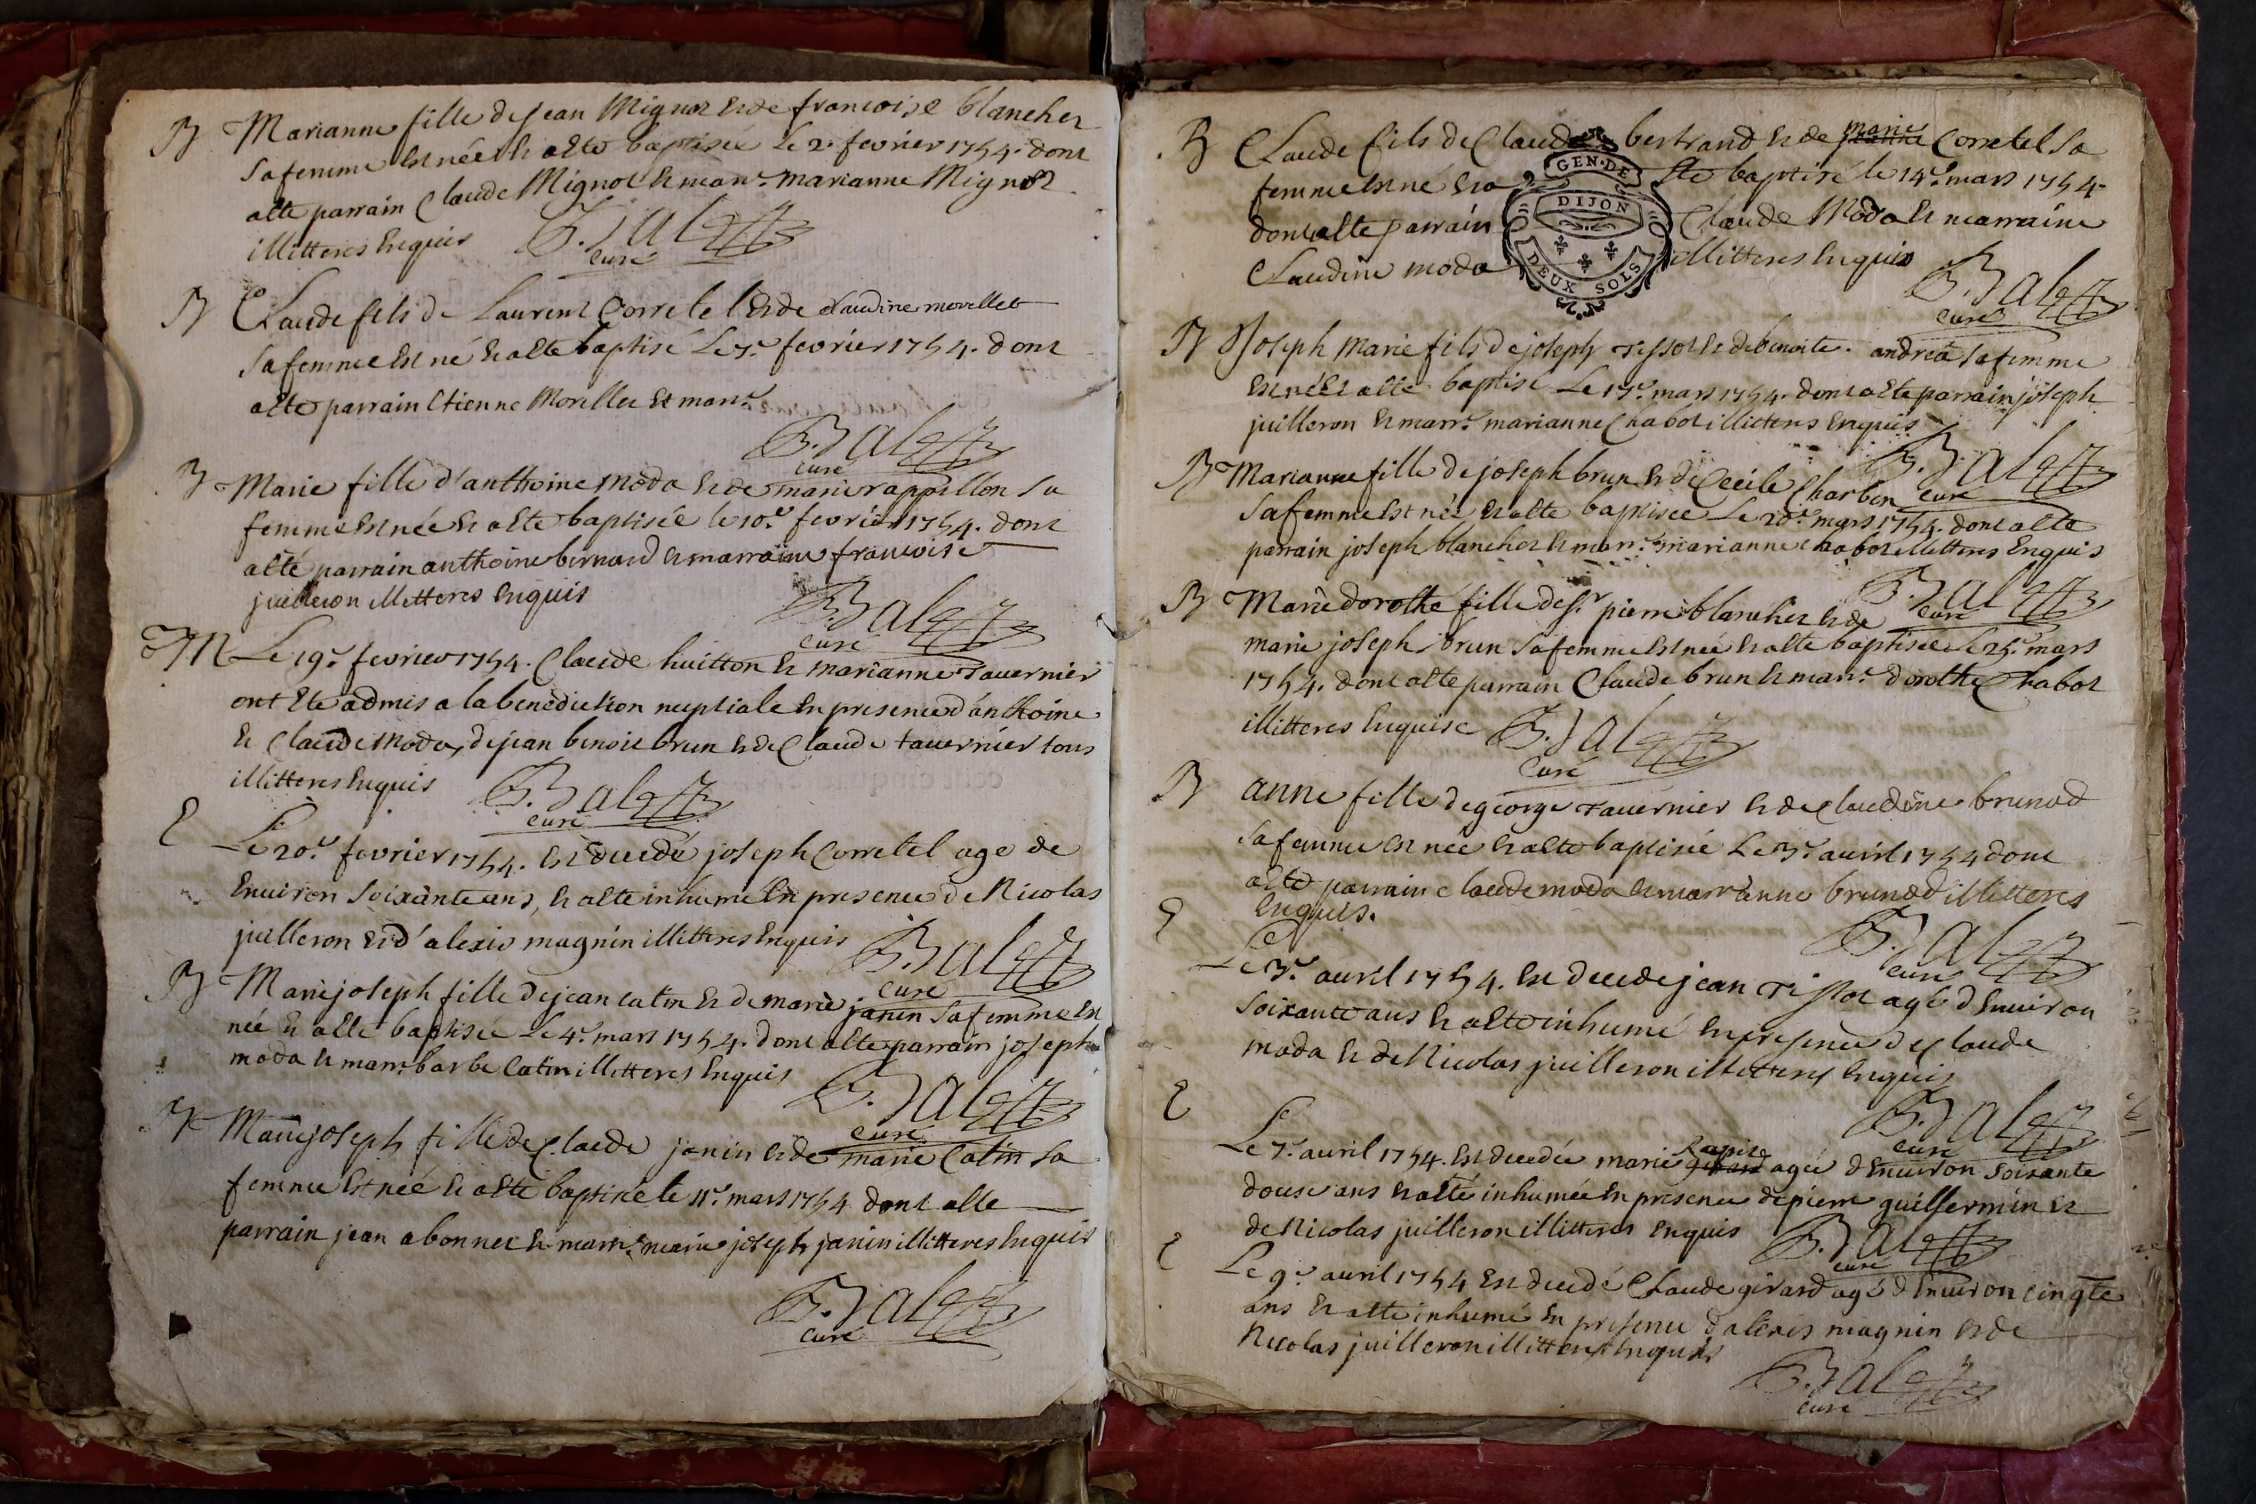 B Marianne fille de jean Mignot et de francoise blanchet
sa femme est née et a esté baptisée le 2.e fevrier 1754. dont
a esté parrain Claude Mignot et marr.e marianne Mignot
illitteres enquis
curé
B Claude fils de Laurent Corretel et de claudine morellet
sa femme est né et a esté baptisé Le 7.e fevrier 1754. dont
a esté parrain Etienne Morillet et marr.e
curé
B Marie fille d'anthoine moda et de marie rappillon sa
femme est née et a esté baptisée le 10.e fevrier 1754. dont
a esté parrain anthoine bernard et marraine francoise
juilleron illitteres enquis
curé
M Le 19.e fevrier 1754. Claude huitton et marianne tavernier
ont été admis a la benediction nuptiale en presence d'anthoine
et Claude moda, de jean benoit brun et de Claude tavernier tous
illitteres enquis
curé
E Le 20.e fevrier 1754. est decedé joseph Corretel age de
environ soixante ans, et a esté inhumé en presence de Nicolas
juilleron et d'alexis magnin illitteres enquis
curé
B Marie joseph fille de jean catin et de marie janin sa femme est
née et a esté baptisée Le 4.e mars 1754. dont a esté parrain joseph
moda et marr.e barbe Catin illitteres enquis
curé
B Marie joseph fille de Claude janin et de marie Catin sa
femme est née et a esté baptisée le 11.e mars 1754 dont a esté
parrain jean abonnet et marr.e marie joseph janin illitteres enquis
curé
B Claude fils de Claude bertrand et de marie Corretel sa
femme est né et a été baptisé le 14.e mars 1754
dont a esté parrain Claude Moda et marraine
Claudine moda illitteres enquis
GEN·DE
DIJON
DEUX SOLS
curé
B Joseph Marie fils de joseph tissot et de benoite andrea sa femme
est né et a esté baptisé Le 17.e mars 1754. dont a esté parrain joseph
juilleron et marr.e marianne Chabot illitteres enquis
curé
B Marianne fille de joseph brun et de Cecile Charbon
sa femme est née et a esté baptisée Le 20.e mars 1754. dont a esté
parrain joseph blanchet et marr.e marianne chabot illitteres enquis
curé
B Marie dorothé fille de S.r pierre blanchet et de
marie joseph brun sa femme est née et a esté baptisée le 25.e mars
1754. dont a esté parrain Claude brun et marr.e dorothé Chabot
illitteres enquise
curé
B anne fille de george tavernier et de Claudine brunod
sa femme est née et a esté baptisée Le 3.e avril 1754 dont
a esté parrain claude moda et marr anne brunod illitteres
enquis.
curé
E Le 3.e avril 1754. est decedé jean tissot agé d'environ
soixante ans et a esté inhumé en presence de Claude
moda et de Nicolas juilleron illitteres enquis
curé
E Le 7.e avril 1754. est decedée marie agée d'environ soixante
douse ans et a esté inhumée en presence de pierre guillermin et
de Nicolas juilleron illitteres enquis
curé
E Le 9.e avril 1754 est decedé Claude girard agé d'environ cinqte
ans et a esté inhumé en presence d'alexis magnin et de
Nicolas juilleron illitteres enquis
curé